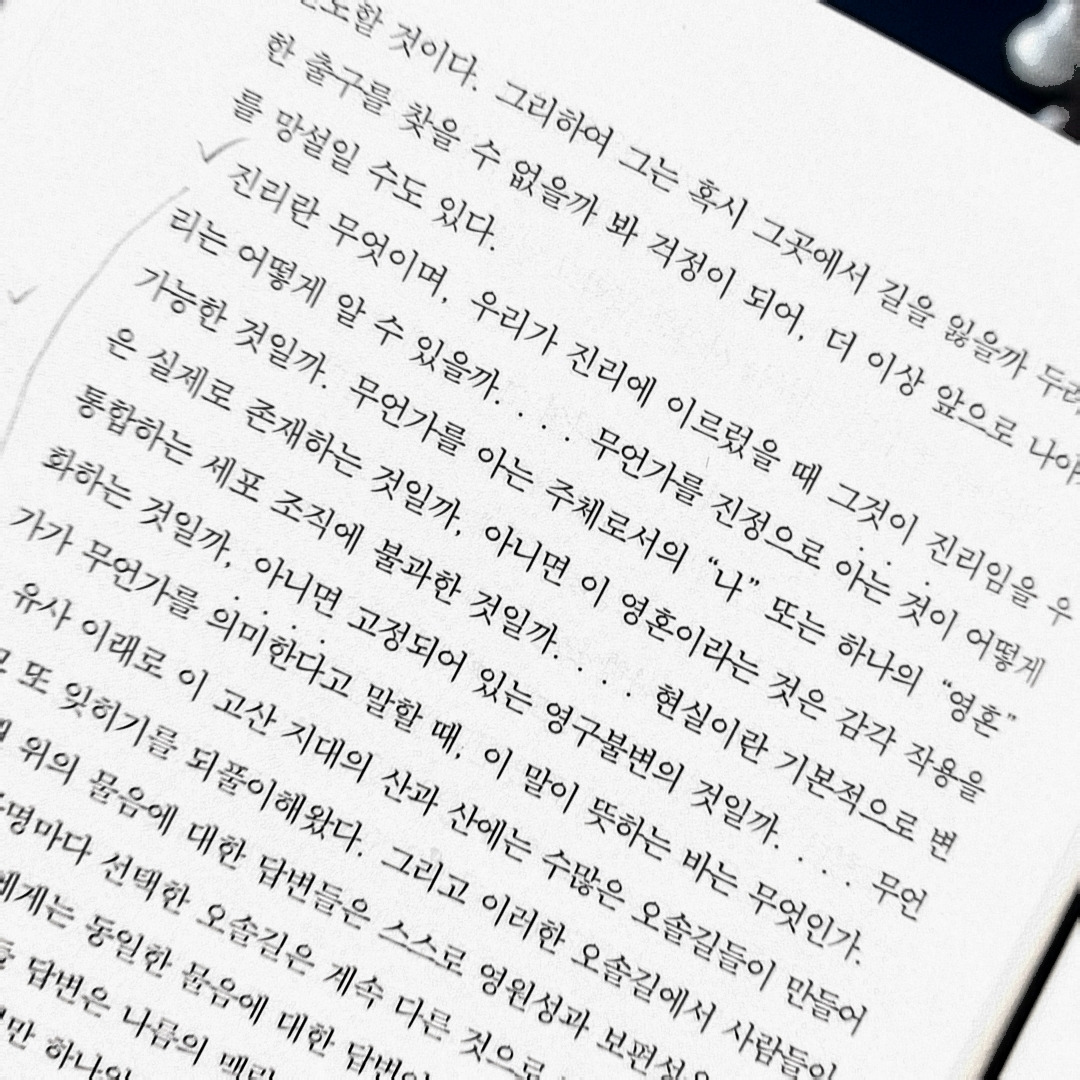 할 것이다. 그리하여 그는 혹시 그곳에서 길을 잃을까 두려
한 출구를 찾을 수 없을까 봐 걱정이 되어, 더 이상 앞으로 나아
를 망설일 수도 있다.
진리란 무엇이며, 우리가 진리에 이르렀을 때 그것이 진리임을 우
리는 어떻게 알 수 있을까. . . . 무언가를 진정으로 아는 것이 어떻게
가능한 것일까. 무언가를 아는 주체로서의 “나” 또는 하나의 “영혼”
은 실제로 존재하는 것일까, 아니면 이 영혼이라는 것은 감각 작용을
통합하는 세포 조직에 불과한 것일까. . . . 현실이란 기본적으로 변
화하는 것일까, 아니면 고정되어 있는 영구불변의 것일까. . . . 무언
가가 무언가를 의미한다고 말할 때, 이 말이 뜻하는 바는 무엇인가.
유사 이래로 이 고산 지대의 산과 산에는 수많은 오솔길들이 만들어
또 잊히기를 되풀이해왔다. 그리고 이러한 오솔길에서 사람들이
위의 물음에 대한 답변들은 스스로 영원성과 보편성
명마다 선택한 오솔길은 계속 다른 것으로
에게는 동일한 물음에 대한
답변은 나름의
하나의